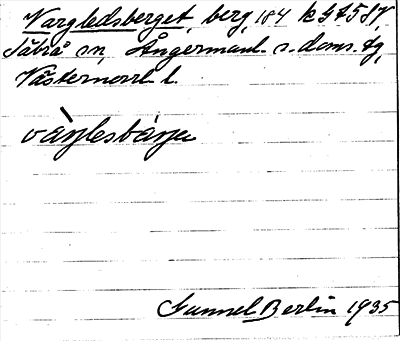 Vargledsberget, berg, 184 k 545 87,
Säbrå sn, Ångermanl. s. doms. tg,
Västernorrl. l.
vàrlesbárje
Gunnel Berlin 1935